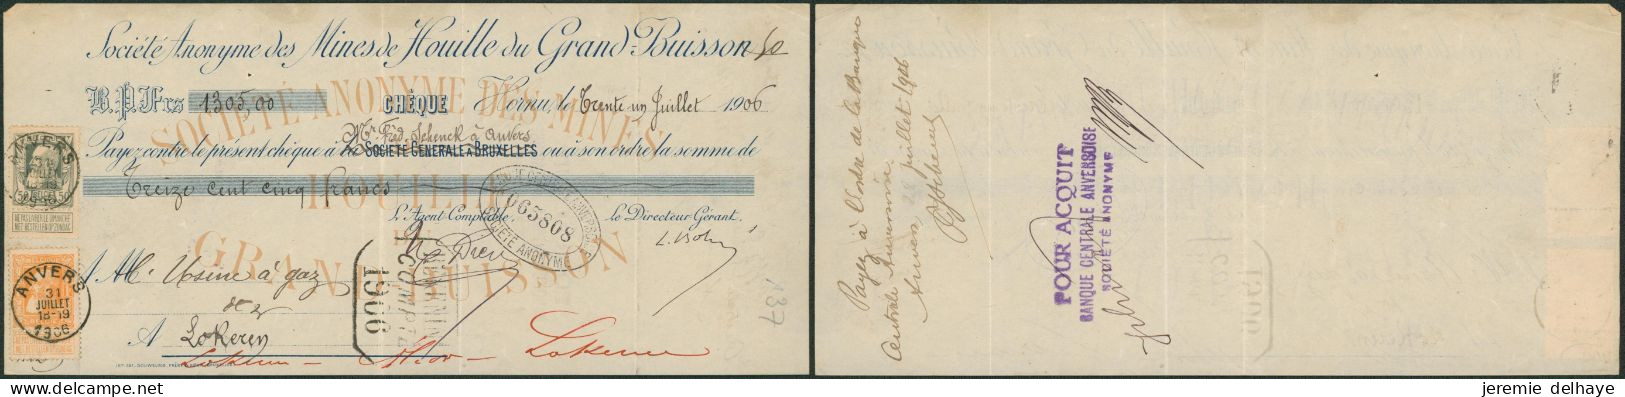 Société Anonyme des Mines de Houille du Grand-Buisson
SOCIÉTÉ ANONYME DES MINES
B.P.Frs 1305,00 CHÈQUE Hornu, le Trente un Juillet 1906
Mr Fréd. Schenck à Anvers
Payez contre le présent chèque à la SOCIÉTÉ GÉNÉRALE À BRUXELLES ou à son ordre la somme de
HOUILLE
Treize cent cinq francs
L'Agent Comptable, le Directeur Gérant,
065808
SOCIÉTÉ ANONYME
GRAND BUISSON
A M. Usine à gaz
de &
A Lokeren
Lokeren
1906
137
ANVERS
NE PAS LIVRER LE DIMANCHE
NIET BESTELLEN OP ZONDAG
ANVERS
31
JUILLET
18-19
1906
Payez à l'ordre de la Banque
Centrale Anversoise
Anvers 28 Juillet 1906
POUR ACQUIT
BANQUE CENTRALE ANVERSOISE
SOCIÉTÉ ANONYME
jeremie delhaye